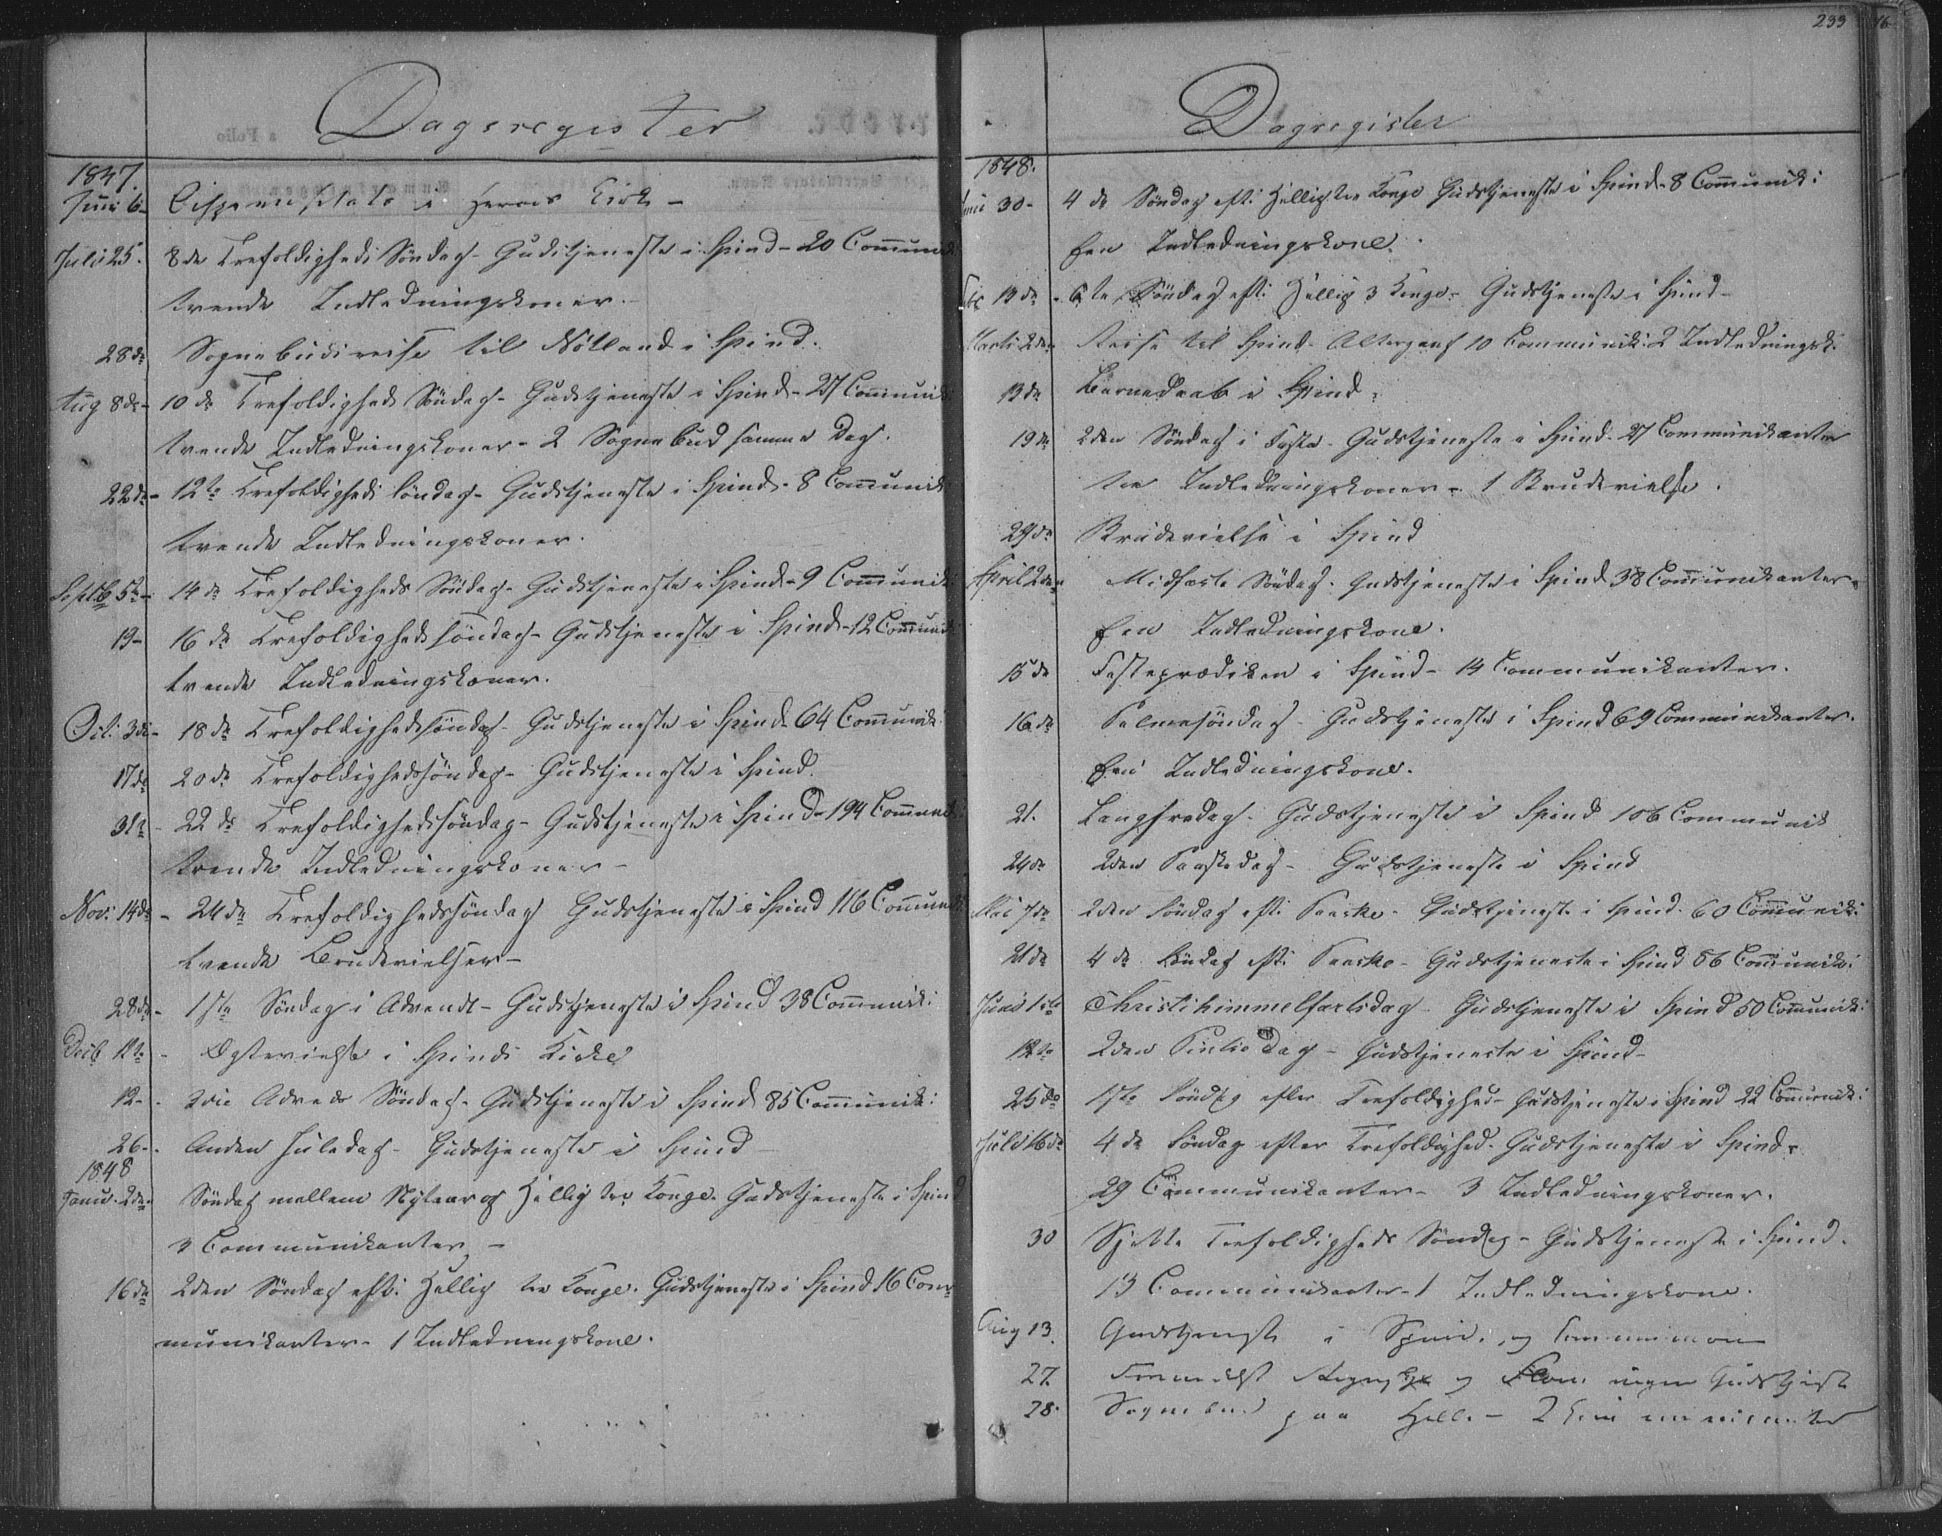 Dagsregister
1847.
Juni 6 - Bispevisitats i Herrøs Kirke -
Juli 25. 8de Trefoldigheds Søndag - Gudstjeneste i Spind - 20 Communik:
trende Indledningskoner. -
28de Sognebudsreise til Nötland i Spind.
Aug 8de - 10de Trefoldigheds Søndag - Gudstjeneste i Spind - 27 Communik:
trende Indledningskoner - 2 Sognebud samme Dag.
22de - 12te Trefoldigheds Söndag - Gudstjeneste i Spind - 8 Communik
trende Indledningskoner.
Septb 5te - 14de Trefoldigheds Söndag - Gudstjeneste i Spind - 9 Communik:
19 - 16de Trefoldighedssöndag - Gudstjeneste i Spind - 12 Communik
trende Indledningskoner.
Oct: 3die - 18de Trefoldighedssöndag - Gudstjeneste i Spind 64 Communik:
17de 20de Trefoldighedssöndag - Gudstjeneste i Spind.
31te - 22de Trefoldighedssöndag - Gudstjeneste i Spind - 194 Communik:
trende Indledningskoner -
Nov: 14de - 24de Trefoldighedssöndag Gudstjeneste i Spind 116 Communik:
trende Brudevielser -
28de - 1ste Söndag i Advendt - Gudstjeneste i Spind 38 Communik:
Decb 1te - Ægtevielse i Spinds Kirke
12 - - 2den Advends Söndag - Gudstjeneste i Spind 85 Communik:
26 - - Anden Juledag - Gudstjeneste i Spind -
1848
Janu. 2den - Söndag mellem Nytaar og Hellig tre Konge. Gudstjeneste i Spind
3 Communikanter -
16de 2den Söndag eft: Hellig tre Konge. Gudstjeneste i Spind 16 Com-
munikanter - 1 Indledningskone.
233
Dagregister
1848.
30 - 4de Söndag eft: Hellig tre Konge Gudstjeneste i Spind - 8 Communik:
Een Indledningskone.
13de - 6te Söndag eft: Hellig 3 Konge - Gudstjeneste i Spind -
Marts 2den Reise til Spind - Altergang 10 Communik: 2 Indledningsk:
13de Barnedaab i Spind.
19de 2den Söndag i Faste - Gudstjeneste i Spind - 27 Communikanter
tre Indledningskoner - 1 Brudevielse.
29de Brudevielse i Spind
April 2den Midfaste Söndag. Gudstjeneste i Spind 38 Communikanter.
Een Indledningskone.
15de Fasteprædiken i Spind - 14 Communikanter.
16de Palmesöndag - Gudstjeneste i Spind 69 Communikanter.
Een Indledningskone.
21. Langfredag - Gudstjeneste i Spind 106 Communik
24de 2den Paaskedag - Gudstjeneste i Spind
Mai 7de 2den Söndag eft: Paaske - Gudstjeneste i Spind - 60 Communik:
21de 4de Söndag eft: Paaske - Gudstjeneste i Spind 56 Communik:
Juni 1ste Christi himmelfartsdag - Gudstjeneste i Spind 50 Communik:
12te 2den Pintse Dag - Gudstjeneste i Spind -
25de 1ste Söndag efter Trefoldighed - Gudstjeneste i Spind 22 Communik:
Juli 16de 4de Söndag efter Trefoldighed. Gudstjeneste i Spind -
29 Communikanter - 3 Indledningskoner.
30 Sjette Trefoldigheds Söndag - Gudstjeneste i Spind.
13 Communikanter - 1 Indledningskone.
Aug 13. Gudstjeneste i Spind. og Communion
27. og Storm ingen Gudstjeneste
28. Sognebud paa Helle - 2 Communicanter